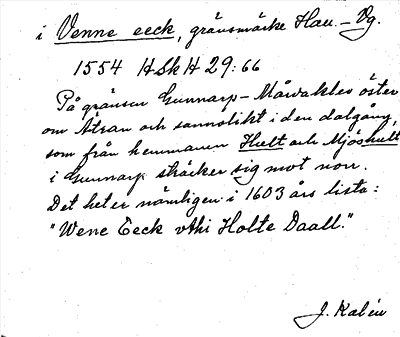 i Venne eeck, gränsmärke Hall. – Vg.
1554 HSk H 29:66
På gränsen Gunnarp–Måvakles öster
om Ätran och sannolikt i den dalgång,
som från hemmanen Hult och Mjöshult
i Gunnarp sträcker sig mot norr.
Det heter nämligen i 1603 års lista:
"Wene Eeck vthi Holte Daall."
J. Kalén